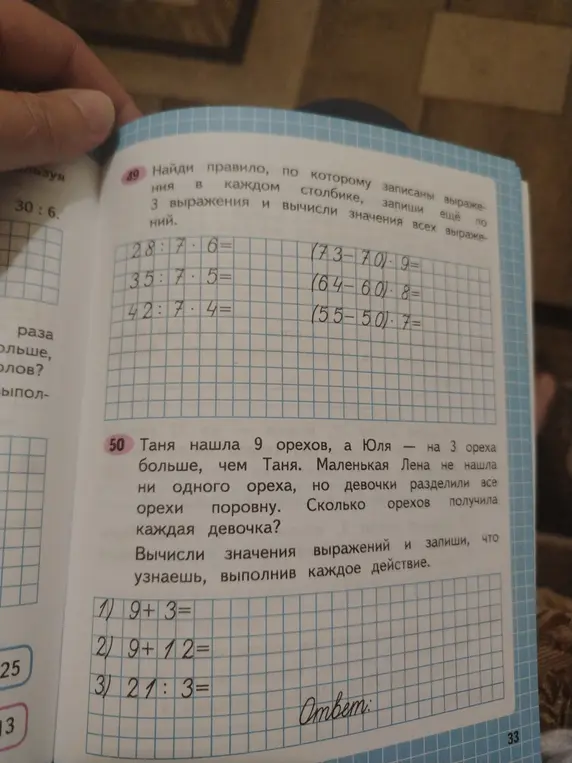 30 : 6.
раза
ольше,
олов?
ыпол-
25
13
49 Найди правило, по которому записаны выраже-
ния в каждом столбике, запиши ещё по
3 выражения и вычисли значения всех выраже-
ний.
28 : 7 · 6= (73 – 70) · 9=
35 : 7 · 5= (64 – 60) · 8=
42 : 7 · 4= (55 – 50) · 7=
50 Таня нашла 9 орехов, а Юля — на 3 ореха
больше, чем Таня. Маленькая Лена не нашла
ни одного ореха, но девочки разделили все
орехи поровну. Сколько орехов получила
каждая девочка?
Вычисли значения выражений и запиши, что
узнаешь, выполнив каждое действие.
1) 9+ 3=
2) 9+ 12=
3) 21 : 3=
Ответ:
33